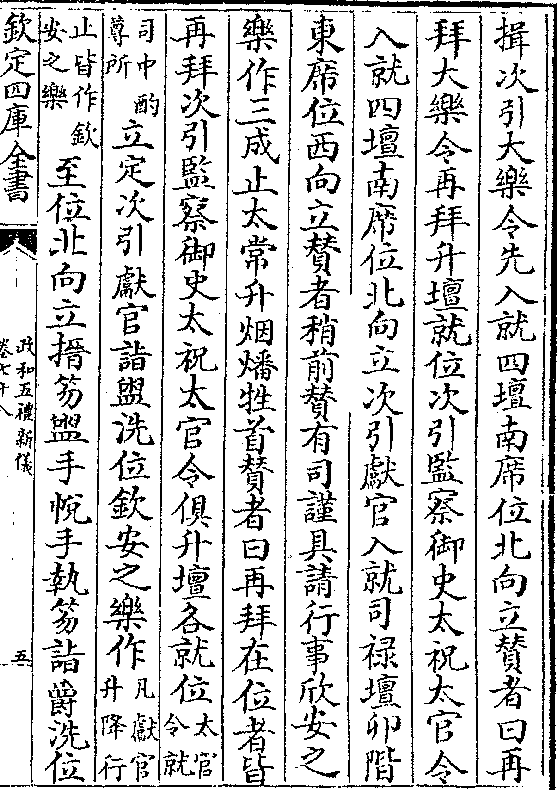 揖次引大樂令先入就四壇南席位北向立賛者曰再
拜大樂令再拜升壇就位次引監察御史太祝太官令
入就四壇南席位北向立次引獻官入就司禄壇卯階
東席位西向立賛者稍前賛有司謹具請行事欣安之
樂作三成止太常升烟燔牲首賛者曰再拜在位者皆
再拜次引監察御史太祝太官令俱升壇各就位太官令就
司中酌尊所立定次引獻官詣盥洗位欽安之樂作凡獻官升降行
止皆作欽安之樂至位北向立搢笏盥手帨手執笏詣爵洗位
欽定四庫全書
政和五禮新儀
卷七十八
五